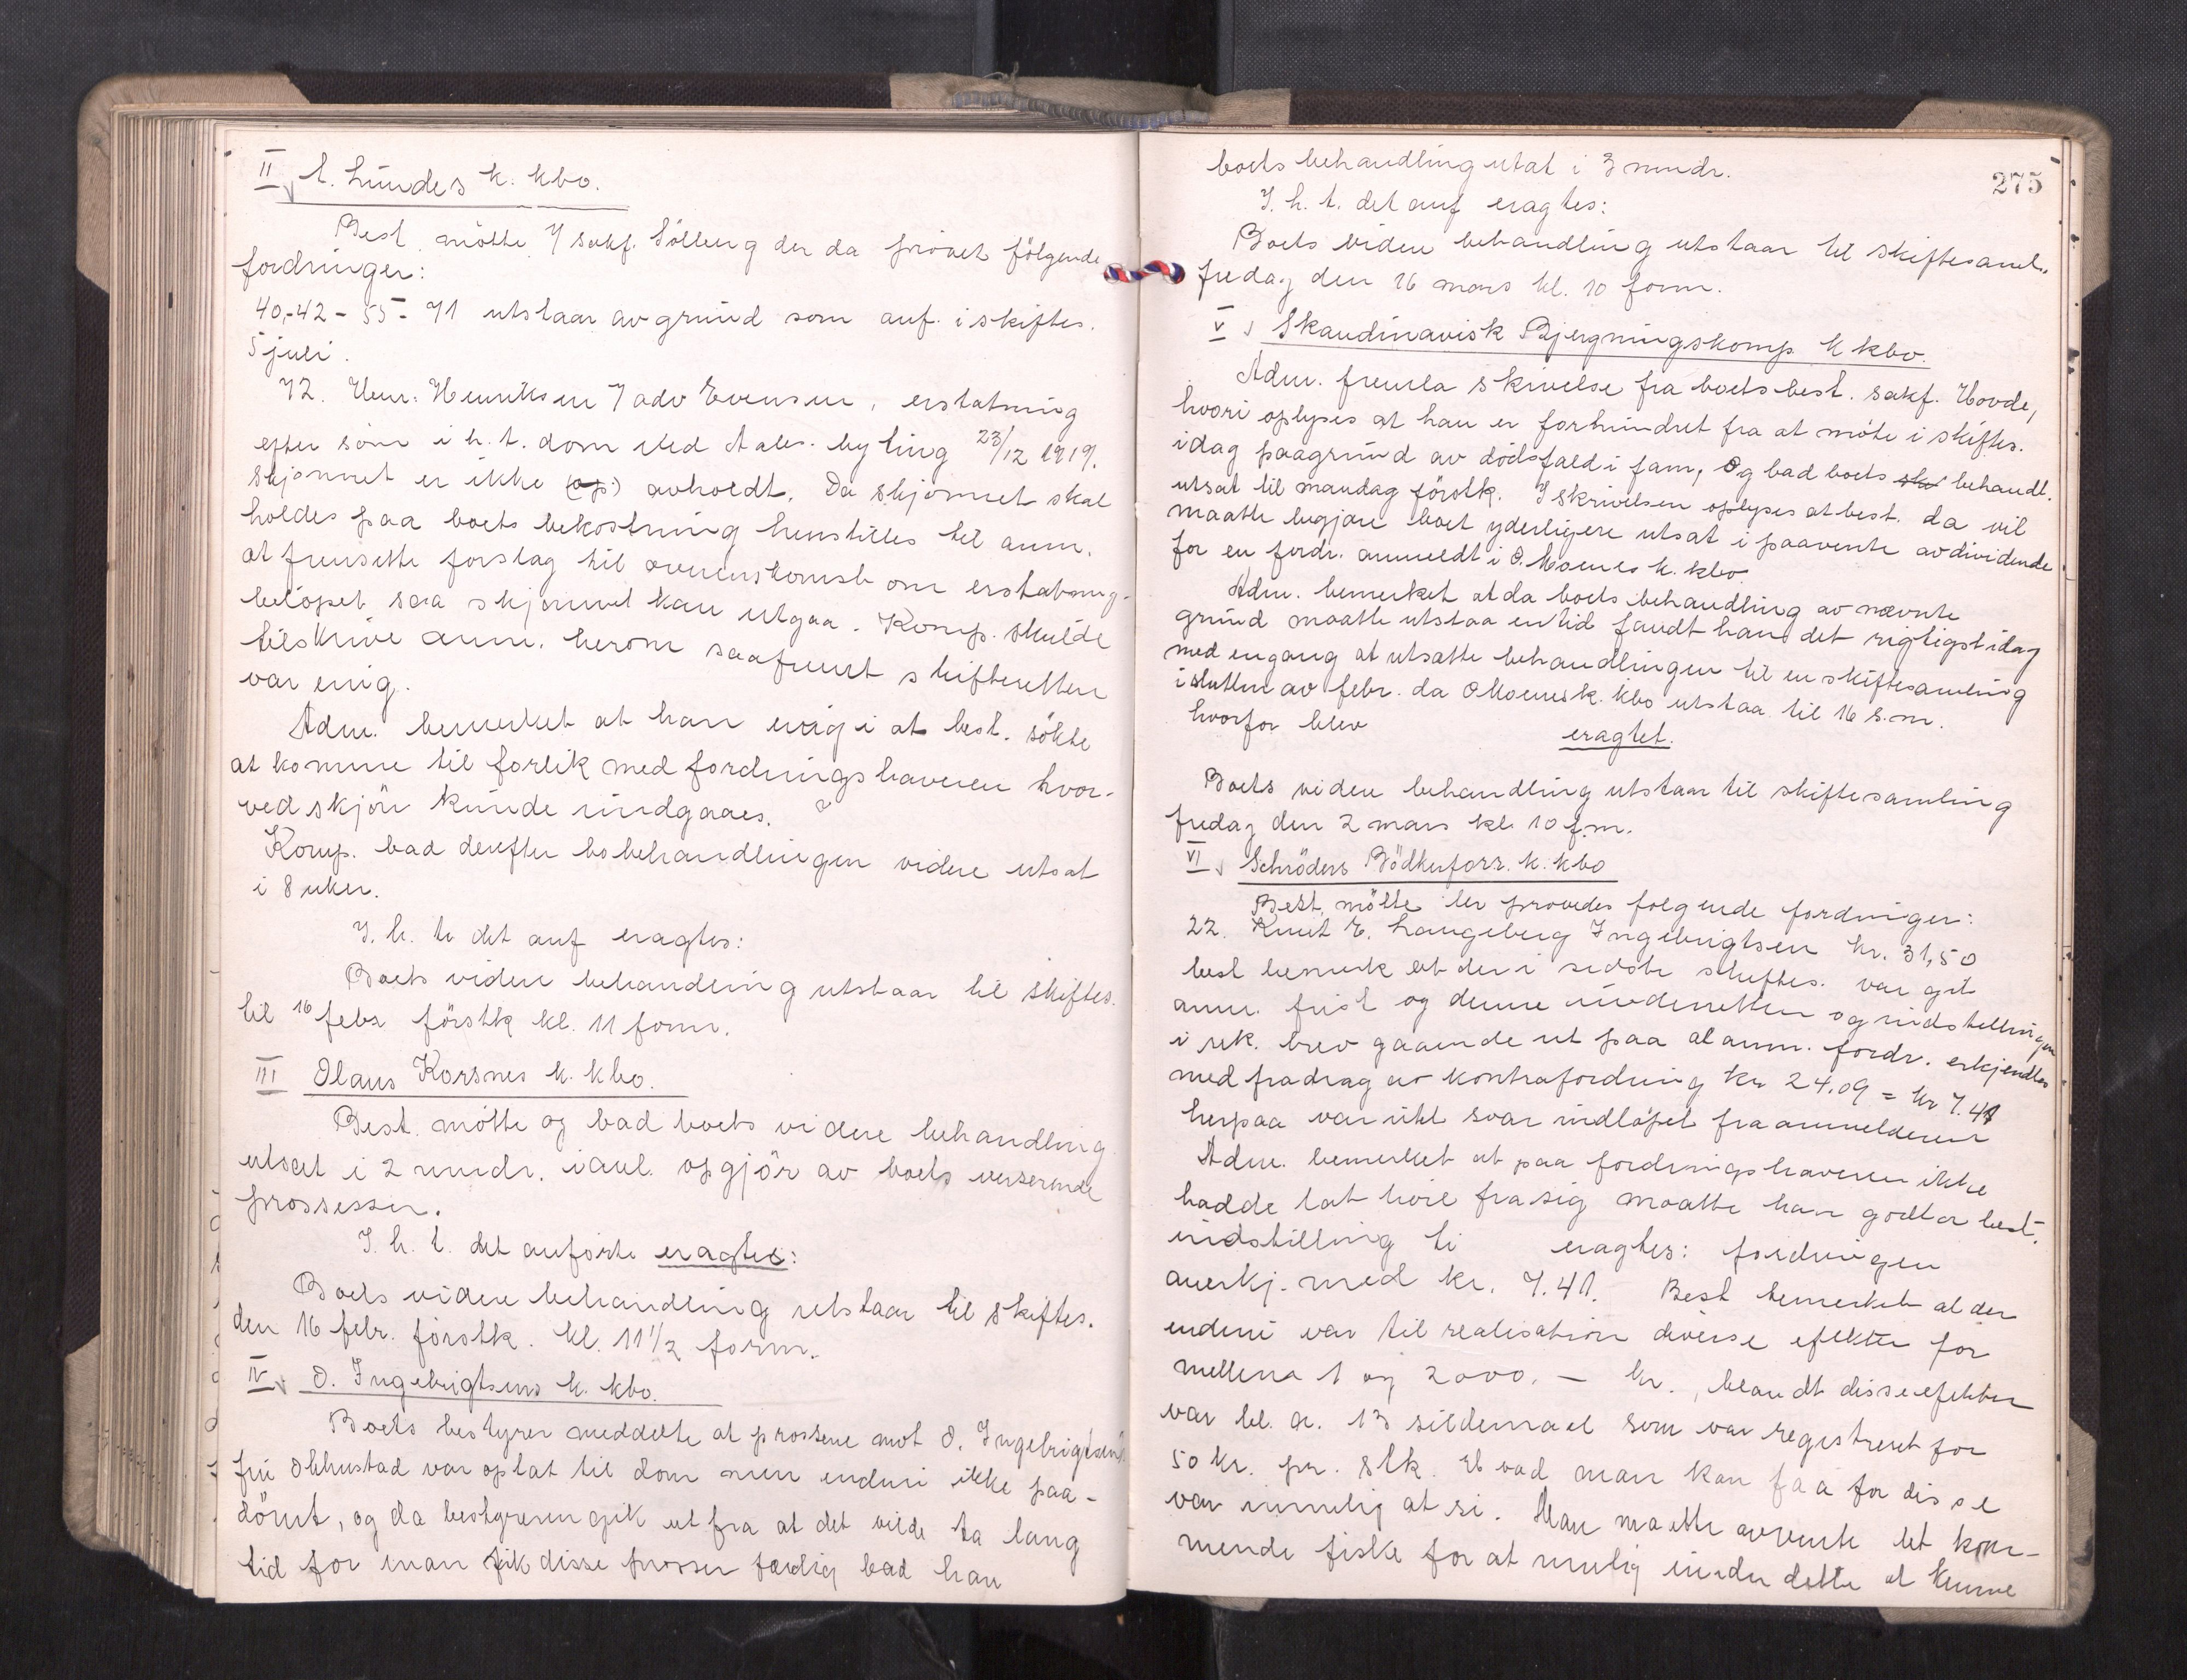 II A. Lundes k. kbo.
Best. mötte v/ sakf. Sölberg der da prövet fölgende
fordringer:
40,-42-55-71 utstaar avgrund som anf. i skiftes.
5 juli.
72. Henr. Henriksen v/ adv Evensen, erstatning
efter sön i h. t. dom ved Aales. byting 23/12 1919.
skjönnet er ikke (op:) avholdt. Da skjönnet skal
holdes paa boets bekostning henstilles til anm.
at fremsette forslag til overenskomst om erstatning-
belöpet saa skjönnet kan utgaa. Komp. skulde
tilskrive anm. herom saafremt skifteretten
var enig.
Adm. bemerket at han enig i at best. sökte
at komme til forlik med fordringshaveren hvor-
ved skjön kunde undgaaes.
Komp. bad derefter bobehandlingen videre utsat
i 8 uker.
I. h. t. det anf eragtes:
Boets videre behandling utstaar til skiftes.
til 16 febr förstk kl. 11 form.
III Olaus Korsnes k. kbo.
Best. mötte og bad boets videre behandling
utsat i 2 mndr. i anl. opgjör av boets verserende
prossesser.
I. h. t. det anförte eragtes:
Boets videre behandling utstaar til skiftes.
den 16 febr. förstk. kl. 11 1/2 form.
IV O. Ingebrigtsens k. kbo.
Boets bestyrer meddelte at prossene mot O. Ingebrigtsens
fru Ohlustad var optat til dom men enduu ikke paa-
dömt, og da bestyreren gik ut fra at det vilde ta lang
tid for man fik disse prosser færdig bad han
275
boets behandling utsat i 3 mndr.
I. h. t. det anf eragtes:
Boets videre behandling utstaar til skiftesaml.
fredag den 16 mars kl. 10 form.
V Skandinavisk Bjergningskomp. k kbo.
Adm. fremla skrivelse fra boets best. sakf. Hovde,
hvori oplyses at han er forhindret fra at möte i skiftes.
idag paagrund av dödsfald i fam, Og bad boets behandl.
utsat til mandag förstk. I skrivelsen oplyses at best. da vil
maatte begjære boet yderligere utsat i paavente av dividende
for en fordr. anmeldt i O. Moenes k. kbo.
Adm. bemerket at da boets behandling av nævnte
grund maatte utstaa en tid fandt han det rigtigst idag
med engang at utsætte behandlingen til en skiftesamling
i slutten av febr. da O Moenes k. kbo utstaa til 16 s.m.
hvorfor blev
eragtet.
Boets videre behandling utstaar til skiftesamling
fredag den 2 mars kl. 10 f.m.
VI Schröders Bödkerforr. k. kbo
Best. mötte der prövedes følgende fordringer:
22. Knut E. Langeberg Ingebrigtsen kr. 31,50
best bemerk at der i sidste skiftes. var git
anm. frist og denne underretten og indstillingen
i rek. brev gaaende ut paa at anm. fordr. erkjendtes
med fradrag av kontrafordring kr 24.09 = kr 7.41
herpaa var ikke svar indlöpet fra anmelderen
Adm. bemerket at paa fordringshaveren ikke
hadde lat höre fra sig maatte han godta best.
indstilling ti eragtes: fordringen
anerkj. med kr. 7.41. Best bemerket at der
enduu var til realisation diverse effekter for
mellem 1 og 2000.- kr., blandt disse effekter
var bl. a. 13 sildemaal som var registreret for
50 kr. pr. stk. Hvad man kan faa for disse
var umulig at si. Man maatte avvente det kom-
mende fiske for at mulig under dette at kunne